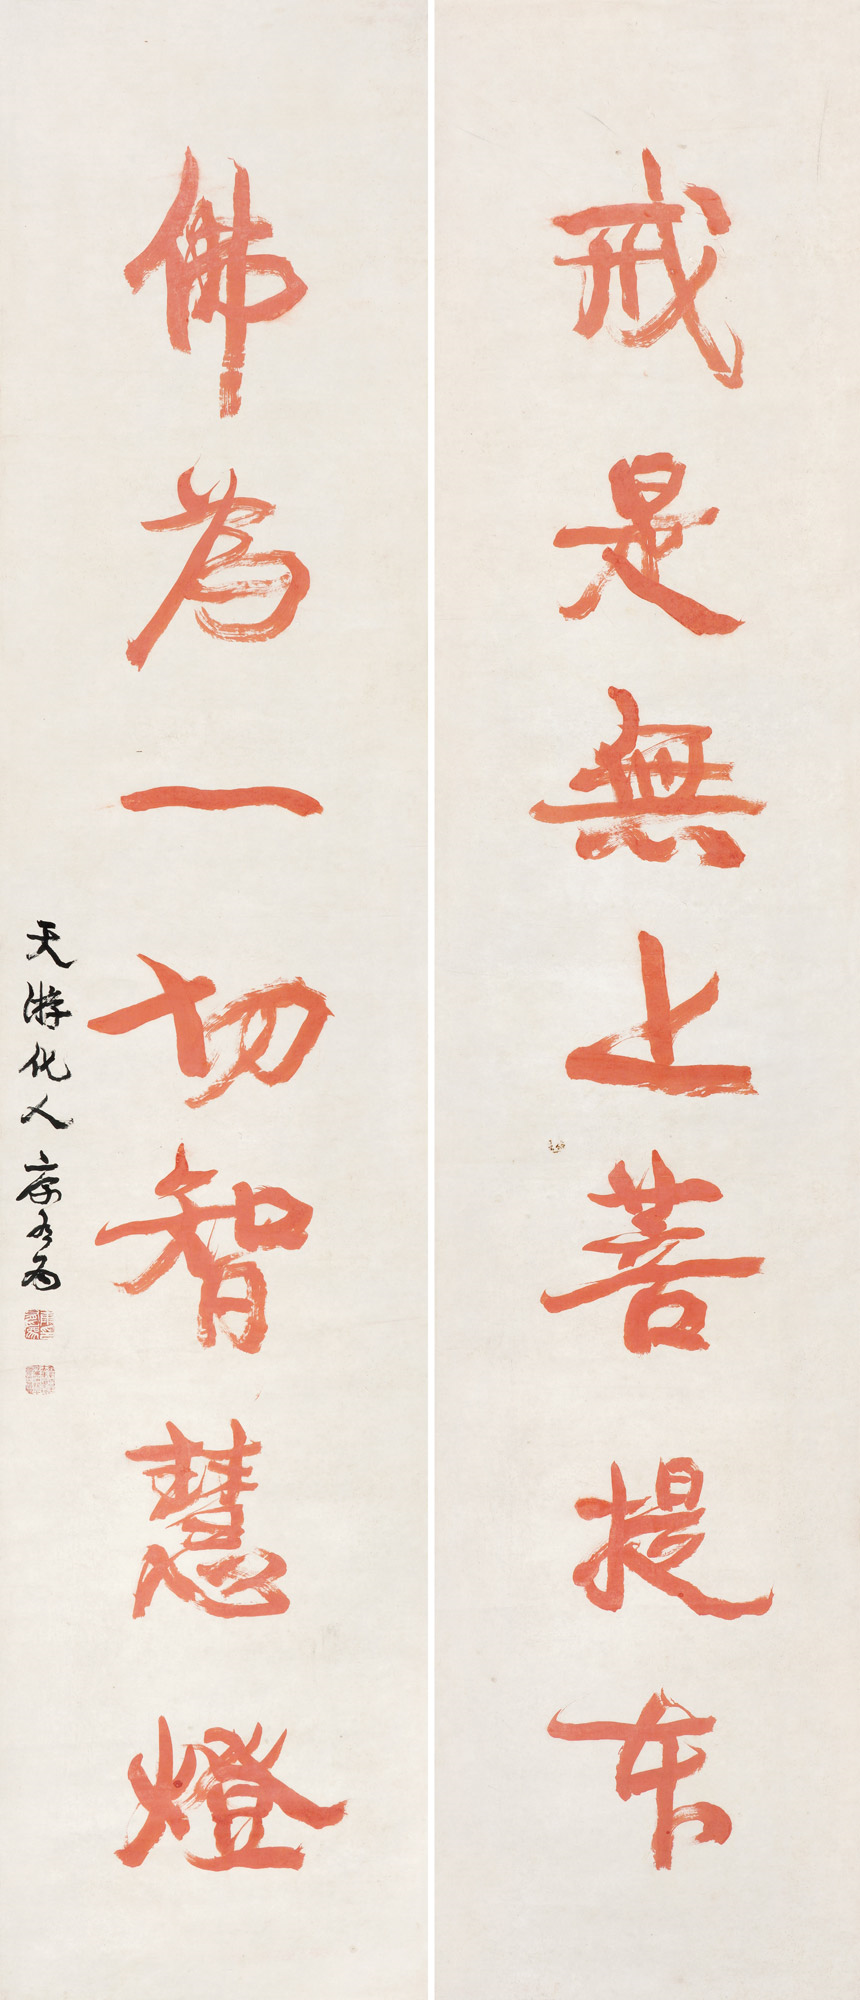 戒是無上菩提本
佛為一切智慧燈
天游化人康有為